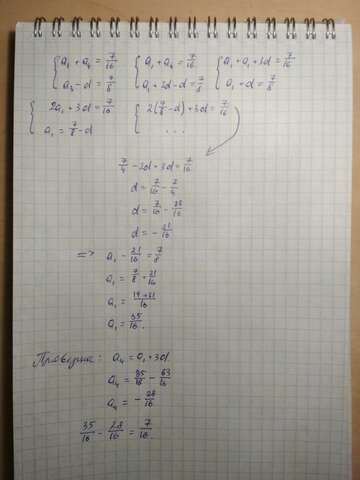 { a₁ + a₄ = 7/16 { a₁ + a₄ = 7/16 { a₁ + a₁ + 3d = 7/16
a₃ - d = 7/8 a₁ + 2d - d = 7/8 a₁ + d = 7/8
{ 2a₁ + 3d = 7/16 { 2(7/8 - d) + 3d = 7/16
a₁ = 7/8 - d ...
7/4 - 2d + 3d = 7/16
d = 7/16 - 7/4
d = 7/16 - 28/16
d = - 21/16
=> a₁ - 21/16 = 7/8
a₁ = 7/8 + 21/16
a₁ = (14+21)/16
a₁ = 35/16.
Проверка: a₄ = a₁ + 3d.
a₄ = 35/16 - 63/16
a₄ = - 28/16
35/16 - 28/16 = 7/16.